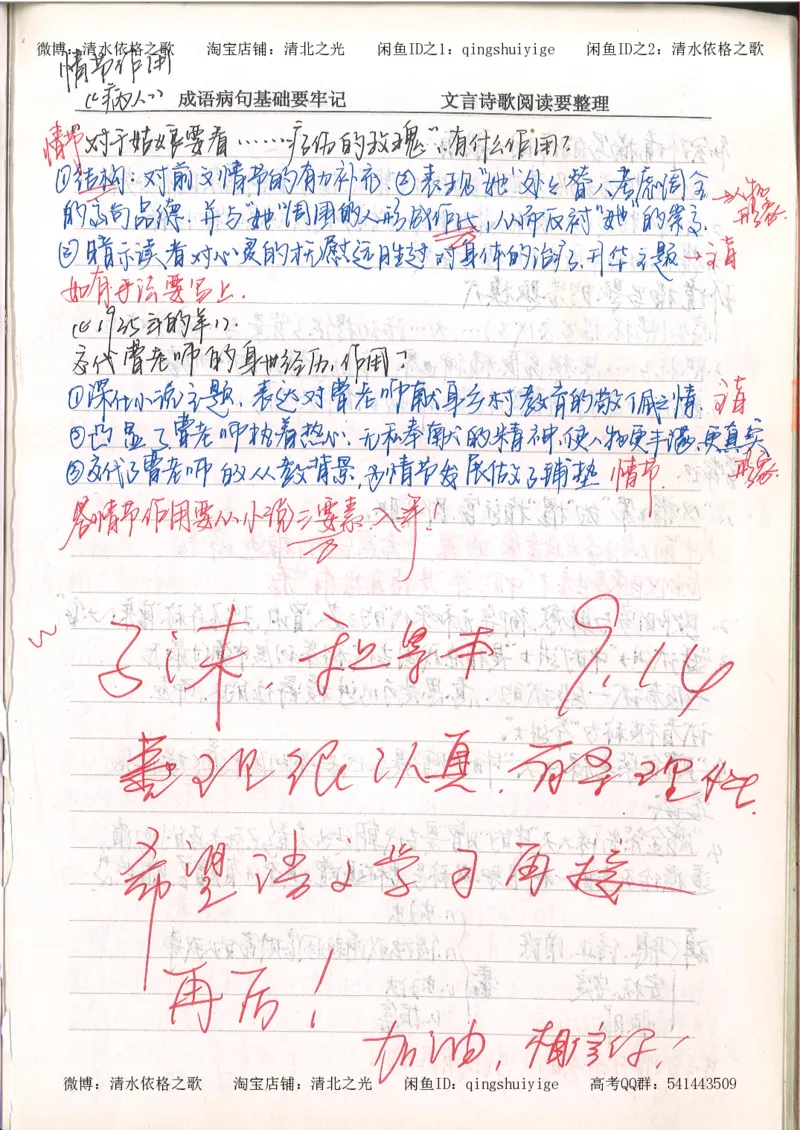 微博：清水依格之歌 淘宝店铺：清北之光 闲鱼ID之1：qingshuiyige 闲鱼ID之2：清水依格之歌
情节作用
《病人》 成语病句基础要牢记 文言诗歌阅读要整理
情节 "对于姑娘要看……疗伤的玫瑰"，有什么作用？
①结构：对前文情节的有力补充.②表现"她"处处替人考虑周全 →人物
的高尚品德.并与"她"周围的人形成对比，从而反衬"她"的崇高. 形象
③暗示读者对心灵的抚慰远胜过对身体的治疗.升华主题→主旨
如有手法要写上.
《1935年的羊》.
交代曹老师的身世经历.作用？
①深化小说主题，表达对曹老师献身乡村教育的敬佩之情. 主旨
②凸显了曹老师执着热心、无私奉献的精神，使人物更丰满.更真实
③交代了曹老师的从教背景，为情节发展做了铺垫 情节. 形象
答情节作用要从小说三要素入手！
积累本 9.14
整理很认真，有条理性.
希望语文学习再接
再厉！
加油，相信你！
微博：清水依格之歌 淘宝店铺：清北之光 闲鱼ID：qingshuiyige 高考QQ群：541443509